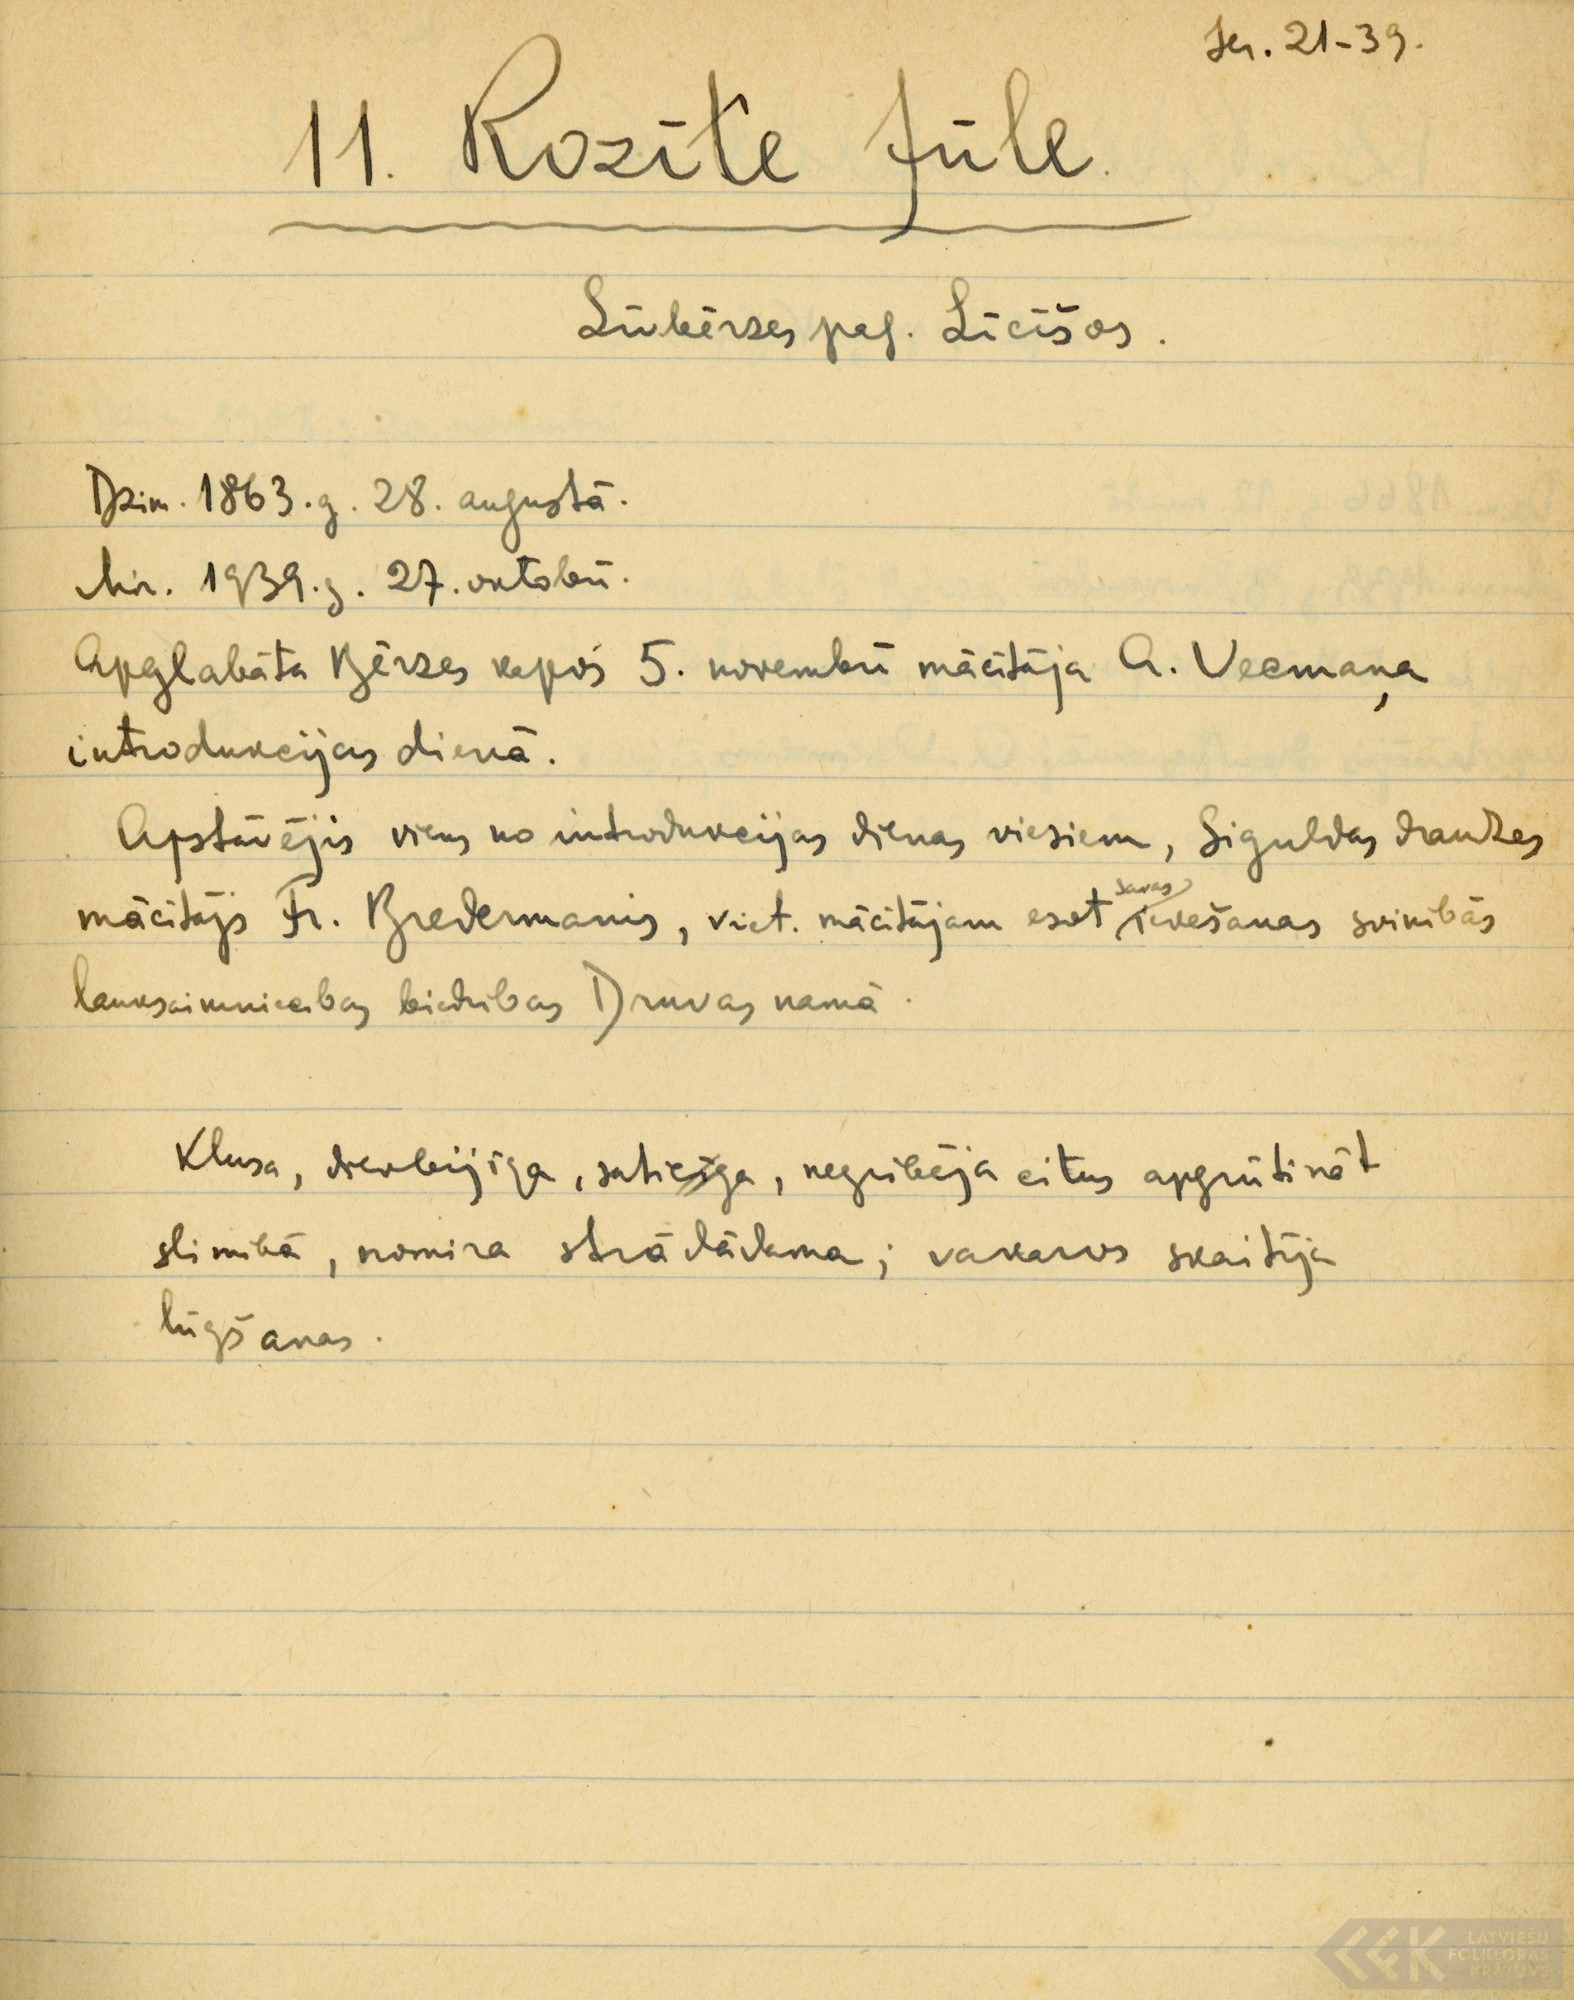 21-39.
11. Rozīte Jūle.
Līvbērzes pag. Līcīšos.
Dzim. 1863. g. 28. augustā.
Mir. 1939. g. 27. oktobrī.
Apglabāta Bērzes kapos 5. novembrī mācītāja A. Vecmaņa
introdukcijas dienā.
Apstāvējis viens no introdukcijas dienas viesiem, Siguldas draudzes
mācītājs Fr. Bredermanis, viet. mācītājam esot savas ievešanas svinībās
lauksaimniecības biedrības Druvas namā.
Klusa, dievbijīga, saticīga, negribēja citus apgrūtināt
slimībā, nomira strādādama; vakaros skaitīja
lūgšanas.
LATVIEŠU
FOLKLORAS
KRĀTUVE